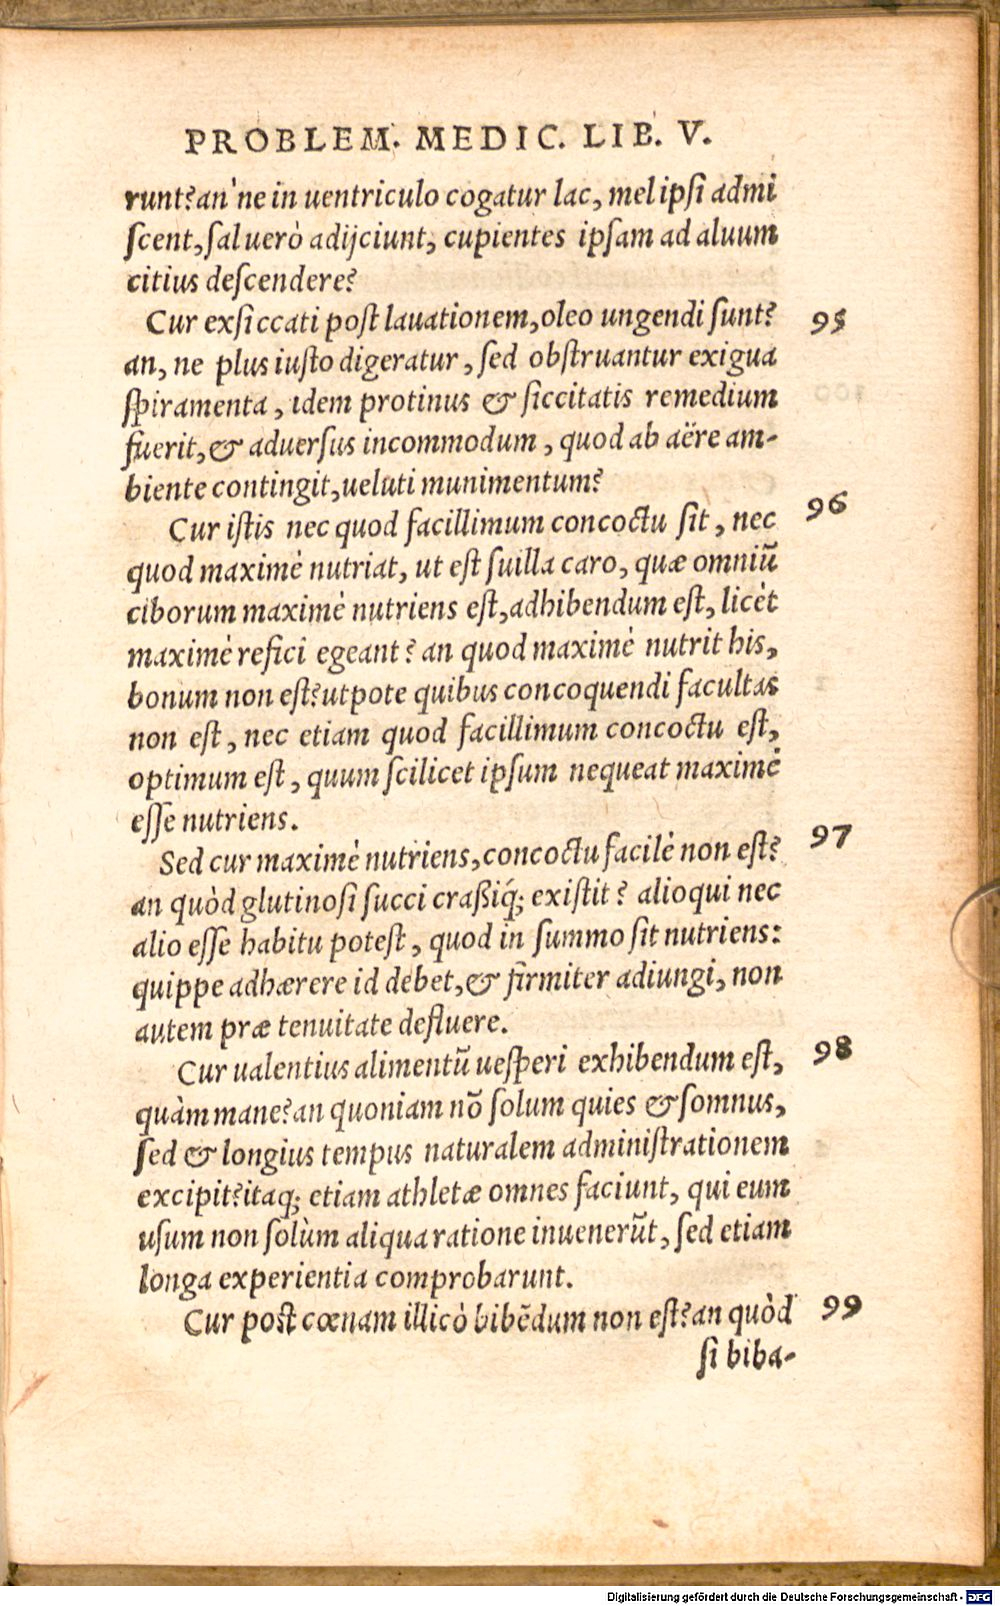 PROBLEM. MEDIC. LIB. V.
runt? an'ne in uentriculo cogatur lac, mel ipsi admi
scent, sal uerò adijciunt, cupientes ipsam ad aluum
citius descendere?
Cur exsiccati post lauationem, oleo ungendi sunt? 95
an, ne plus iusto digeratur, sed obstruantur exigua
spiramenta, idem protinus & siccitatis remedium
fuerit, & aduersus incommodum, quod ab aëre am-
biente contingit, ueluti munimentum?
Cur istis nec quod facillimum concoctu sit, nec 96
quod maximè nutriat, ut est suilla caro, quæ omniũ
ciborum maximè nutriens est, adhibendum est, licèt
maximè refici egeant? an quod maximè nutrit his,
bonum non est? utpote quibus concoquendi facultas
non est, nec etiam quod facillimum concoctu est,
optimum est, quum scilicet ipsum nequeat maximè
esse nutriens.
Sed cur maximè nutriens, concoctu facilè non est? 97
an quòd glutinosi succi craßiq́; existit? alioqui nec
alio esse habitu potest, quod in summo sit nutriens:
quippe adhærere id debet, & firmiter adiungi, non
autem præ tenuitate defluere.
Cur ualentius alimentũ uesperi exhibendum est, 98
quàm mane? an quoniam nõ solum quies & somnus,
sed & longius tempus naturalem administrationem
excipit? itaq; etiam athletæ omnes faciunt, qui eum
usum non solùm aliqua ratione inuenerũt, sed etiam
longa experientia comprobarunt.
Cur post cœnam illicò bibẽdum non est? an quòd 99
si biba-
Digitalisierung gefördert durch die Deutsche Forschungsgemeinschaft - DFG